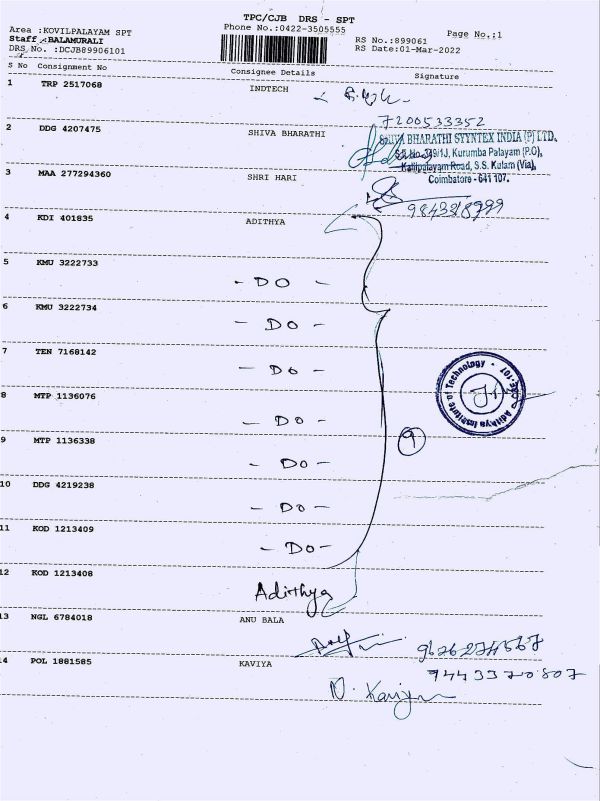 TPC/CJB DRS - SPT
Area :KOVILPALAYAM SPT Phone No.:0422-3505555 Page No.:1
Staff :BALAMURALI RS No.:899061
DRS No. :DCJB89906101 RS Date:01-Mar-2022
S No Consignment No Consignee Details Signature
1 TRP 2517068 INDTECH
7200533352
2 DDG 4207475 SHIVA BHARATHI
SHIVA BHARATHI STYNTEX INDIA (P) LTD.
S.F. No. 349/1J, Kurumba Palayam (P.O),
Kalipalayam Road, S.S. Kulam (Via),
Coimbatore - 641 107.
3 MAA 277294360 SHRI HARI
4 KDI 401835 ADITHYA
5 KMU 3222733
- DO -
6 KMU 3222734
- DO -
7 TEN 7168142
- DO -
Adithya Institute of Technology
8 MTP 1136076
- DO -
9 MTP 1136338
9
- DO -
10 DDG 4219238
- DO -
11 KOD 1213409
- DO -
12 KOD 1213408
Adithya
13 NGL 6784018 ANU BALA
14 POL 1881585 KAVIYA
9443370807